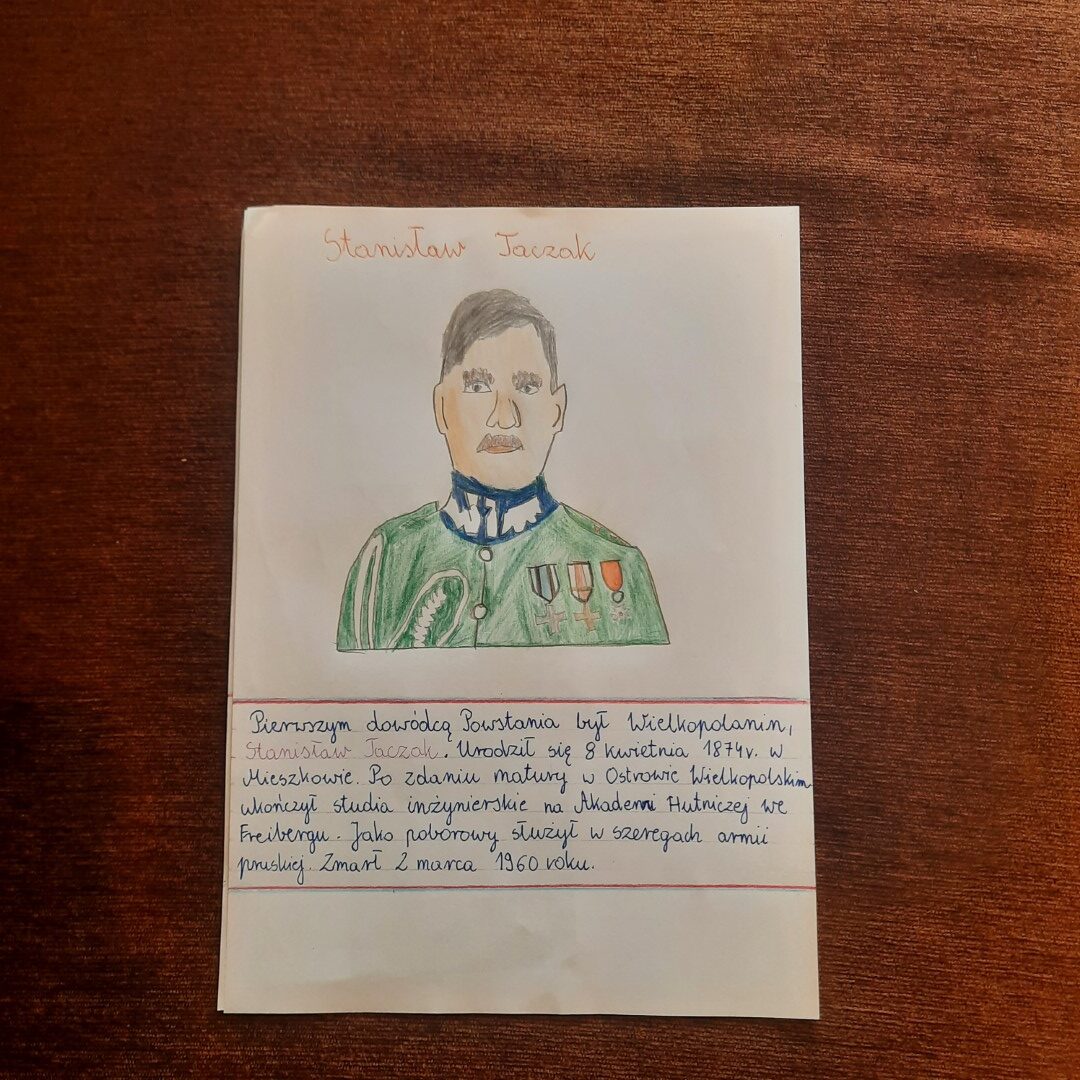 Stanisław Taczak
Pierwszym dowódcą Powstania był Wielkopolanin,
Stanisław Taczak. Urodził się 8 kwietnia 1874r. w
Mieszkowie. Po zdaniu matury w Ostrowie Wielkopolskim
ukończył studia inżynierskie na Akademi Hutniczej we
Freibergu. Jako poborowy służył w szeregach armii
pruskiej. Zmarł 2 marca 1960 roku.